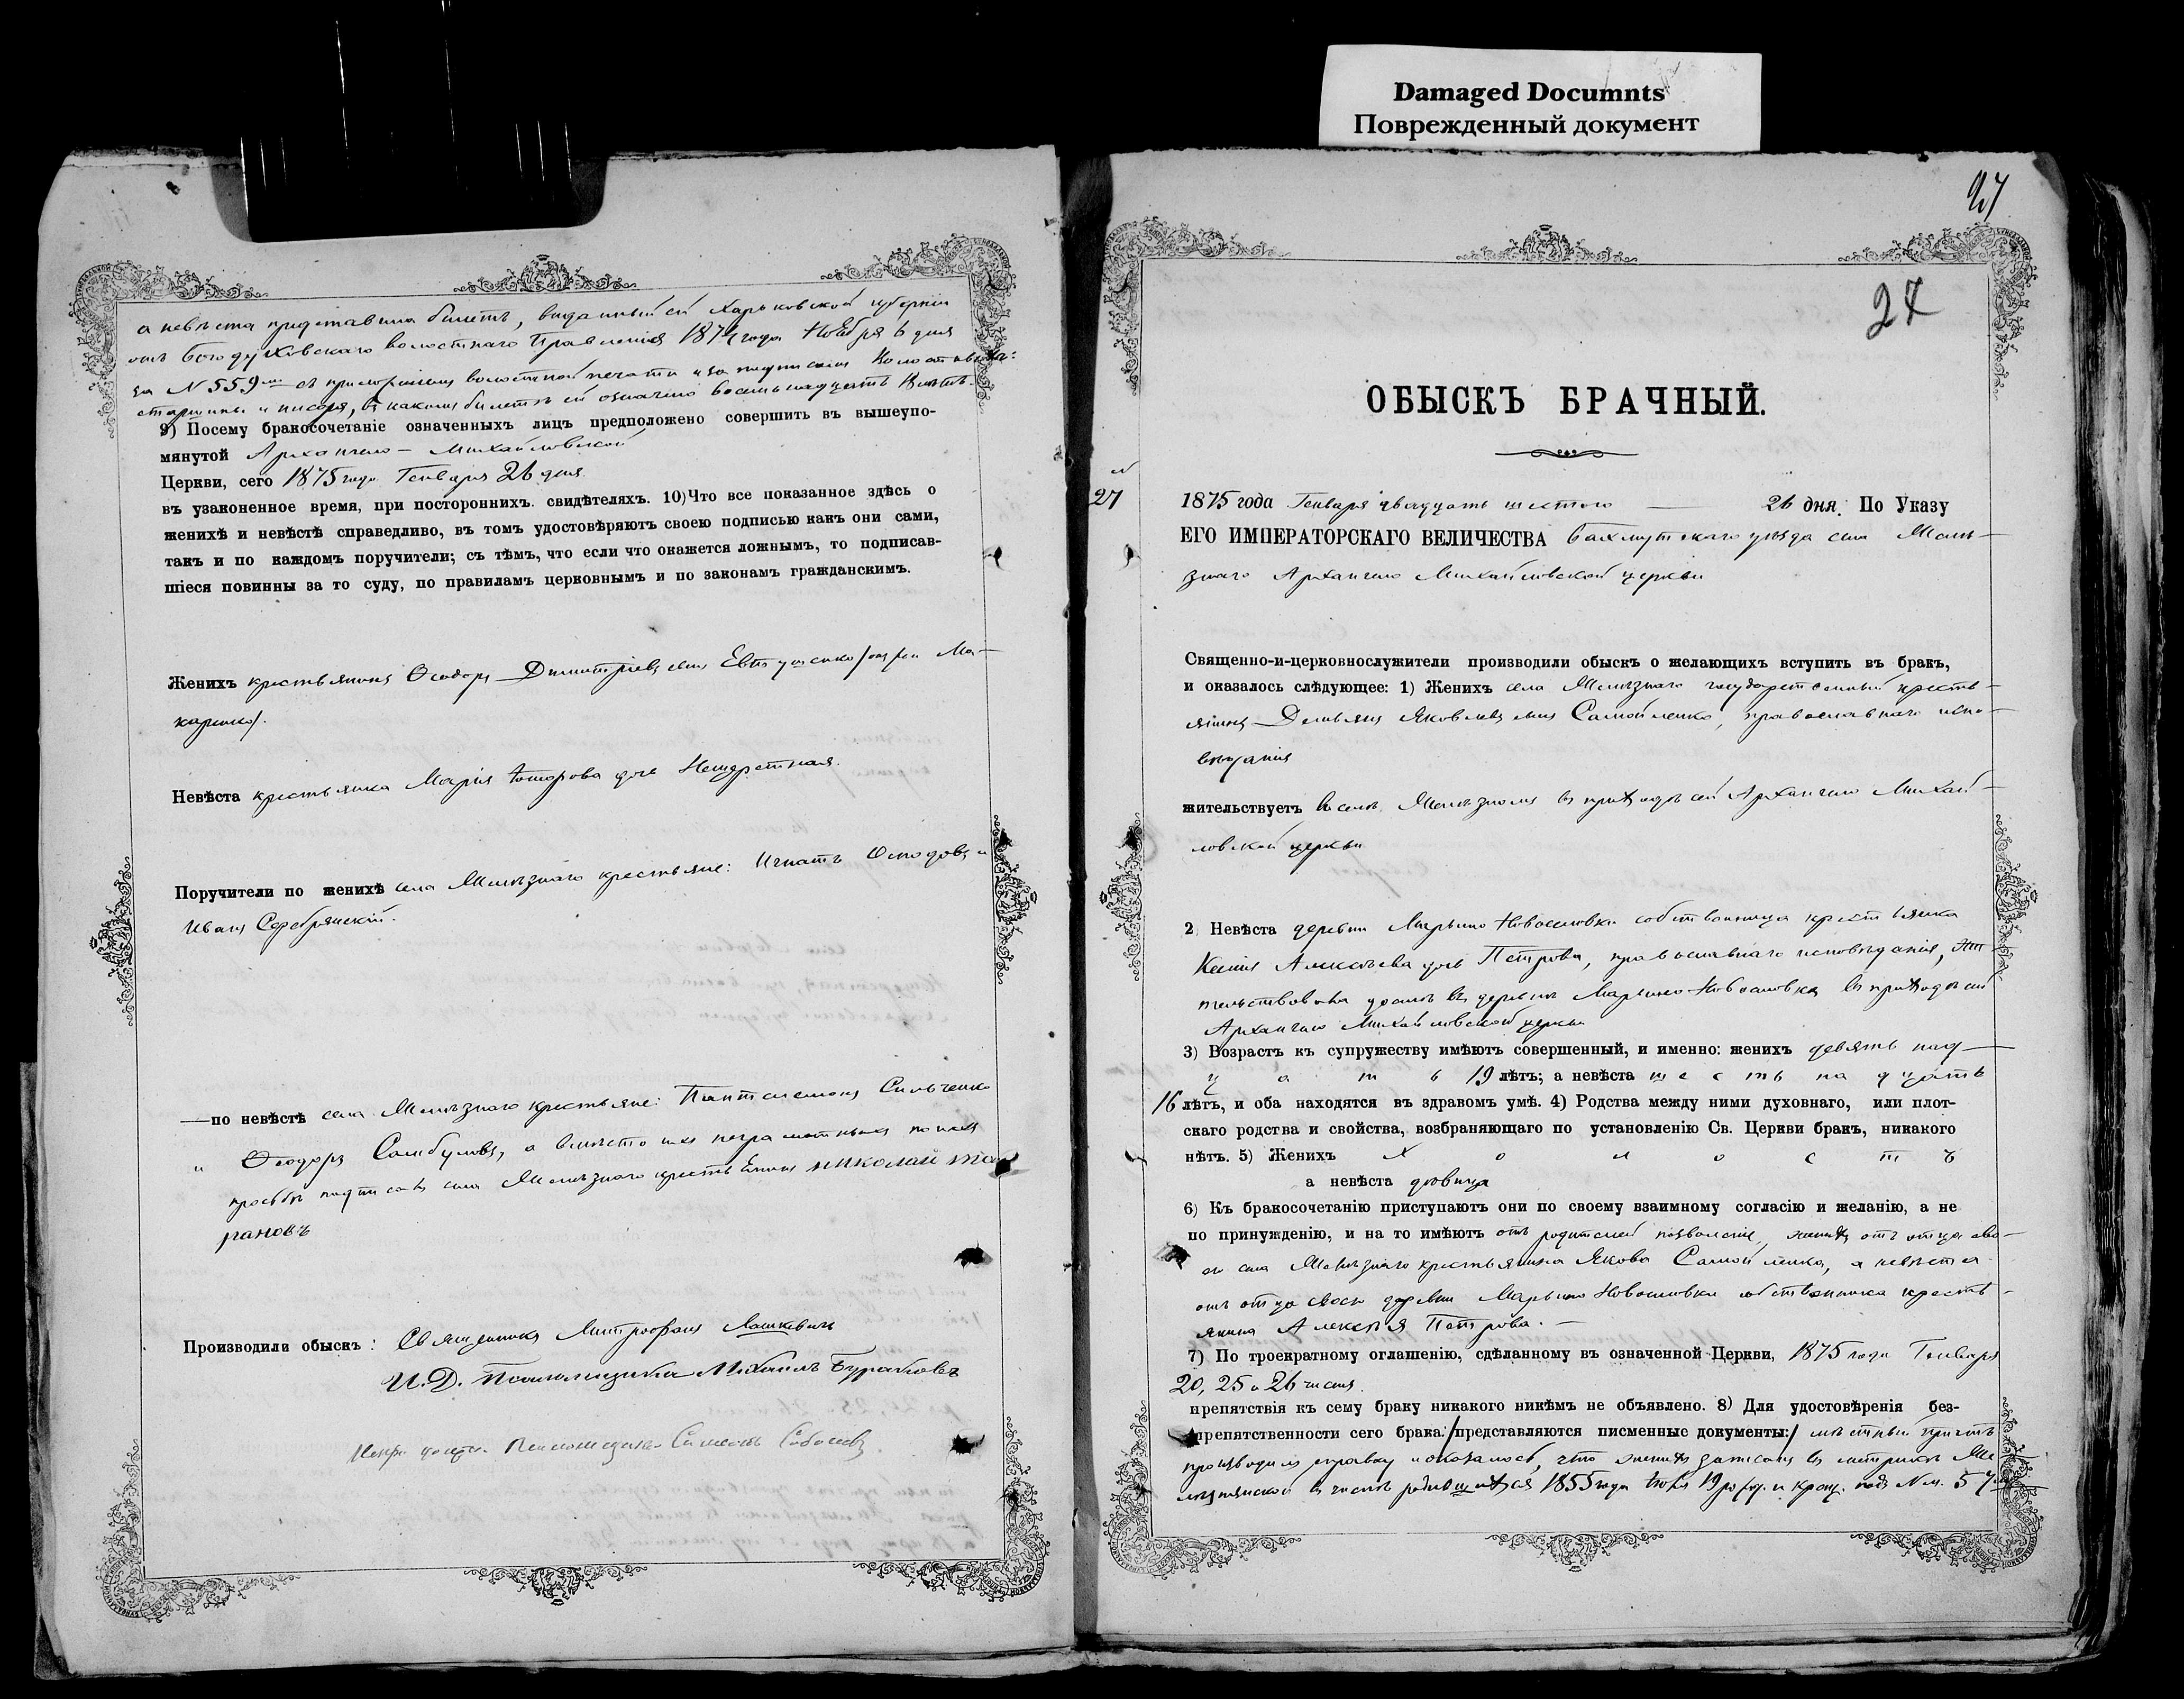 Damaged Documnts
Поврежденный документ
а невѣста представила билетъ, выданный ей Харьковской губерніи
отъ Богодуховскаго волостнаго Правленія 1874 года Ноября 6 дня
за N 559 съ приложеніемъ волостной печати и за подписомъ Волостнаго
старшины и писаря, въ какомъ билетѣ ей означено восемьнадцать 18 лѣтъ.
9) Посему бракосочетаніе означенныхъ лицъ предположено совершить въ вышеупо-
мянутой Архангело-Михайловской
Церкви, сего 1875 года Генваря 26 дня
въ узаконенное время, при постороннихъ свидѣтеляхъ. 10) Что все показанное здѣсь о
женихѣ и невѣстѣ справедливо, въ томъ удостовѣряютъ своею подписью какъ они сами,
такъ и по каждомъ поручители; съ тѣмъ, что если что окажется ложнымъ, то подписав-
шіеся повинны за то суду, по правиламъ церковнымъ и по законамъ гражданскимъ.
Женихъ крестьянинъ Ѳеодоръ Димитріевъ сынъ Евтушенко /он же Ма-
каренко/.
Невѣста крестьянка Марія дочь Нещеретная.
Поручители по женихѣ села Желѣзнаго крестьяне: Игнатъ и
Иванъ Серебрянскій.
— по невѣстѣ села Желѣзнаго крестьяне: Пантелемонъ Сильченко
и Ѳеодоръ а вмѣсто ихъ неграмотныхъ по ихъ
прозьбѣ подписалъ села Желѣзнаго крестьянинъ николай та
рановъ
Производили обыскъ: Священникъ Митрофанъ Лашкевичъ
И. Д. Псаломщика Михаилъ Бураковъ
Псаломщикъ Соболевъ
27
27
ОБЫСКЪ БРАЧНЫЙ.
N
27
1875 года Генваря двадцать шестого — 26 дня. По Указу
ЕГО ИМПЕРАТОРСКАГО ВЕЛИЧЕСТВА Бахмутскаго уѣзда села Желѣ-
знаго Архангело Михайловской церкви
Священно-и-церковнослужители производили обыскъ о желающихъ вступить въ бракъ,
и оказалось слѣдующее: 1) Женихъ села Желѣзнаго государственный кресть-
янинъ Демьянъ Яковлевъ сынъ Самойленко, православнаго испо-
вѣданія
жительствуетъ въ селѣ Желѣзномъ въ приходѣ сей Архангело Михай-
ловской церкви
2 Невѣста деревни Марьино Новоселовки собственница крестьянка
Ксенія Алексѣева дочь Петрова, православнаго исповѣданія, жи-
тельствовала доселѣ въ деревнѣ Марьино-Новоселовкѣ въ приходѣ сей
Архангело Михайловской церкви
3) Возрастъ къ супружеству имѣютъ совершенный, и именно: женихъ девять над-
цать 19 лѣтъ; а невѣста шестьнадцать
16 лѣтъ, и оба находятся въ здравомъ умѣ. 4) Родства между ними духовнаго, или плот-
скаго родства и свойства, возбраняющаго по установленію Св. Церкви бракъ, никакого
нѣтъ. 5) Женихъ холостъ
а невѣста дѣвица
6) Къ бракосочетанію приступаютъ они по своему взаимному согласію и желанію, а не
по принужденію, и на то имѣютъ отъ родителей позволеніе, женихъ отъ отца сво-
его села Желѣзнаго крестьянина Якова Самойленка, а невѣста
отъ отца своего деревни Марьино Новоселовки собственника кресть-
янина Алексѣя Петрова. —
7) По троекратному оглашенію, сдѣланному въ означенной Церкви, 1875 года Генваря
20, 25 и 26 чиселъ
препятствія къ сему браку никакого никѣмъ не объявлено. 8) Для удостовѣренія без-
препятственности сего брака: /представляются писменные документы:/ мѣстный причтъ
производилъ справку и оказалось, что женихъ записанъ въ метрикѣ Же
лѣзнянской въ числѣ родившихся 1855 года 19 рожд. и крещ. подъ N м. 57